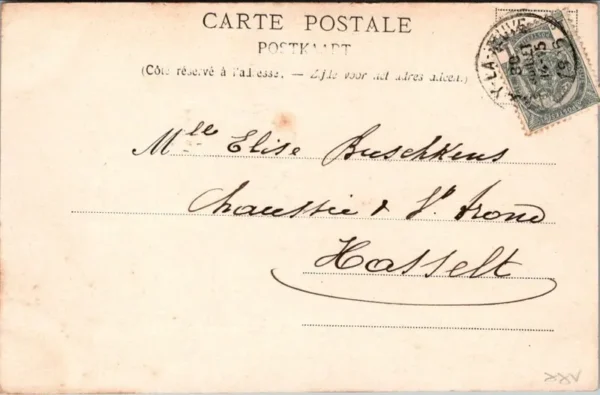 CARTE POSTALE
POSTKAART
(Côté réservé à l'adresse. — Zijde voor het adres alleen.)
Y-LA-NEUVE
30
JUIL
14-15
Mlle Elise Buschkens
Chaussée de St Trond
Hasselt
XXV